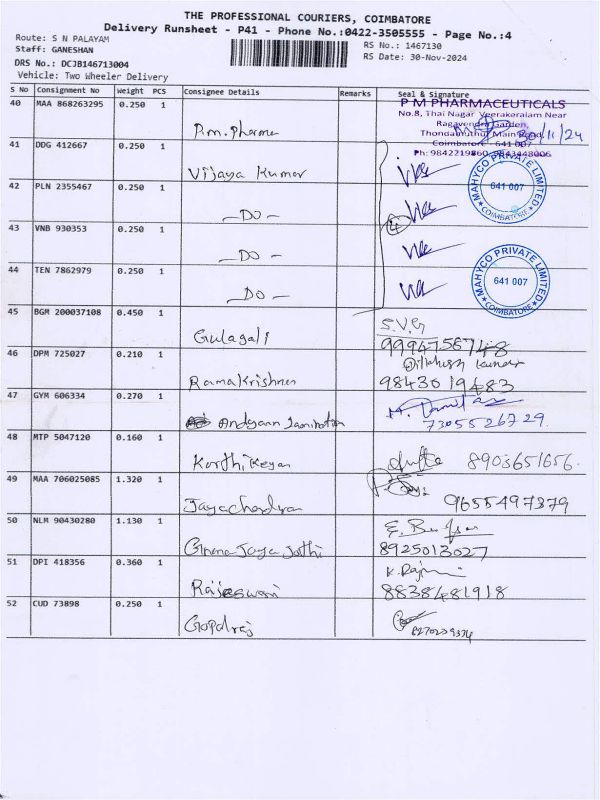 THE PROFESSIONAL COURIERS, COIMBATORE
Delivery Runsheet - P41 - Phone No.:0422-3505555 - Page No.:4
Route: S N PALAYAM
RS No.: 1467130
Staff: GANESHAN
RS Date: 30-Nov-2024
DRS No.: DCJB146713004
Vehicle: Two Wheeler Delivery
S No Consignment No Weight PCS Consignee Details Remarks Seal & Signature
40 MAA 868263295 0.250 1
P.m. pharma
P M PHARMACEUTICALS
No.8, Thai Nagar Veerakeralam Near
Ragavendra Garden,
Thondamuthur Main Road,
Coimbatore - 641 007
Ph: 9842219860, 9843448006
30/11/24
41 DDG 412667 0.250 1
Vijaya Kumar
MAHYCO PRIVATE LIMITED
641 007
COIMBATORE
42 PLN 2355467 0.250 1
- DO -
4
43 VNB 930353 0.250 1
- DO -
44 TEN 7862979 0.250 1
- DO -
MAHYCO PRIVATE LIMITED
641 007
COIMBATORE
45 BGM 200037108 0.450 1
Gulagali
S.V.G
9994756748
46 DPM 725027 0.210 1
Ramakrishnan
9843019483
47 GYM 606334 0.270 1
7305526729
48 MTP 5047120 0.160 1
Karthikeyan
8903651656
49 MAA 706025085 1.320 1
Jayachandran
9655497379
50 NLM 90430280 1.130 1
Gnana Jaya Jothi
8925013027
51 DPI 418356 0.360 1
Rajeswari
8838481918
52 CUD 73898 0.250 1
Gopalraj